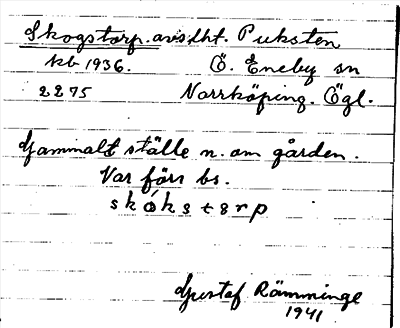 Skogstorp. avs.lht. Puksten
kb 1936. Ö. Eneby sn
2275 Norrköping. Ögl.
Gammalt ställe n. om gården.
Var förr bs.
skóks torp
Gustaf Rämminge
1941